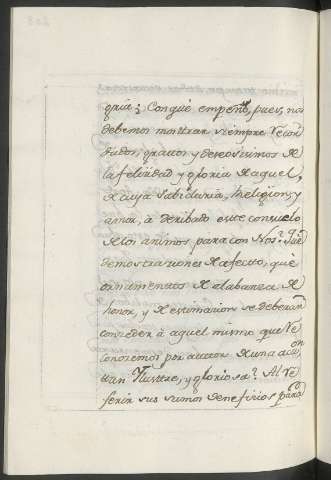 gria? Conquè empeño, pues, nos
debemos mostrar siempre recor
dados, gratos y deseosisimos de
la felicidad y gloria de aquel,
de cuya Sabiduria, Religion, y
amor, à deribado este consuelo
de los animos para con Nos? Que
demostraciones de afecto, què
ornamentos de alabanza de
honor, y de estimacion se deberan
conceder à aquel mismo que re
conocemos por auctor de una acci
on tan Ilustre, y gloriosa? Al re
ferir sus sumos beneficios para